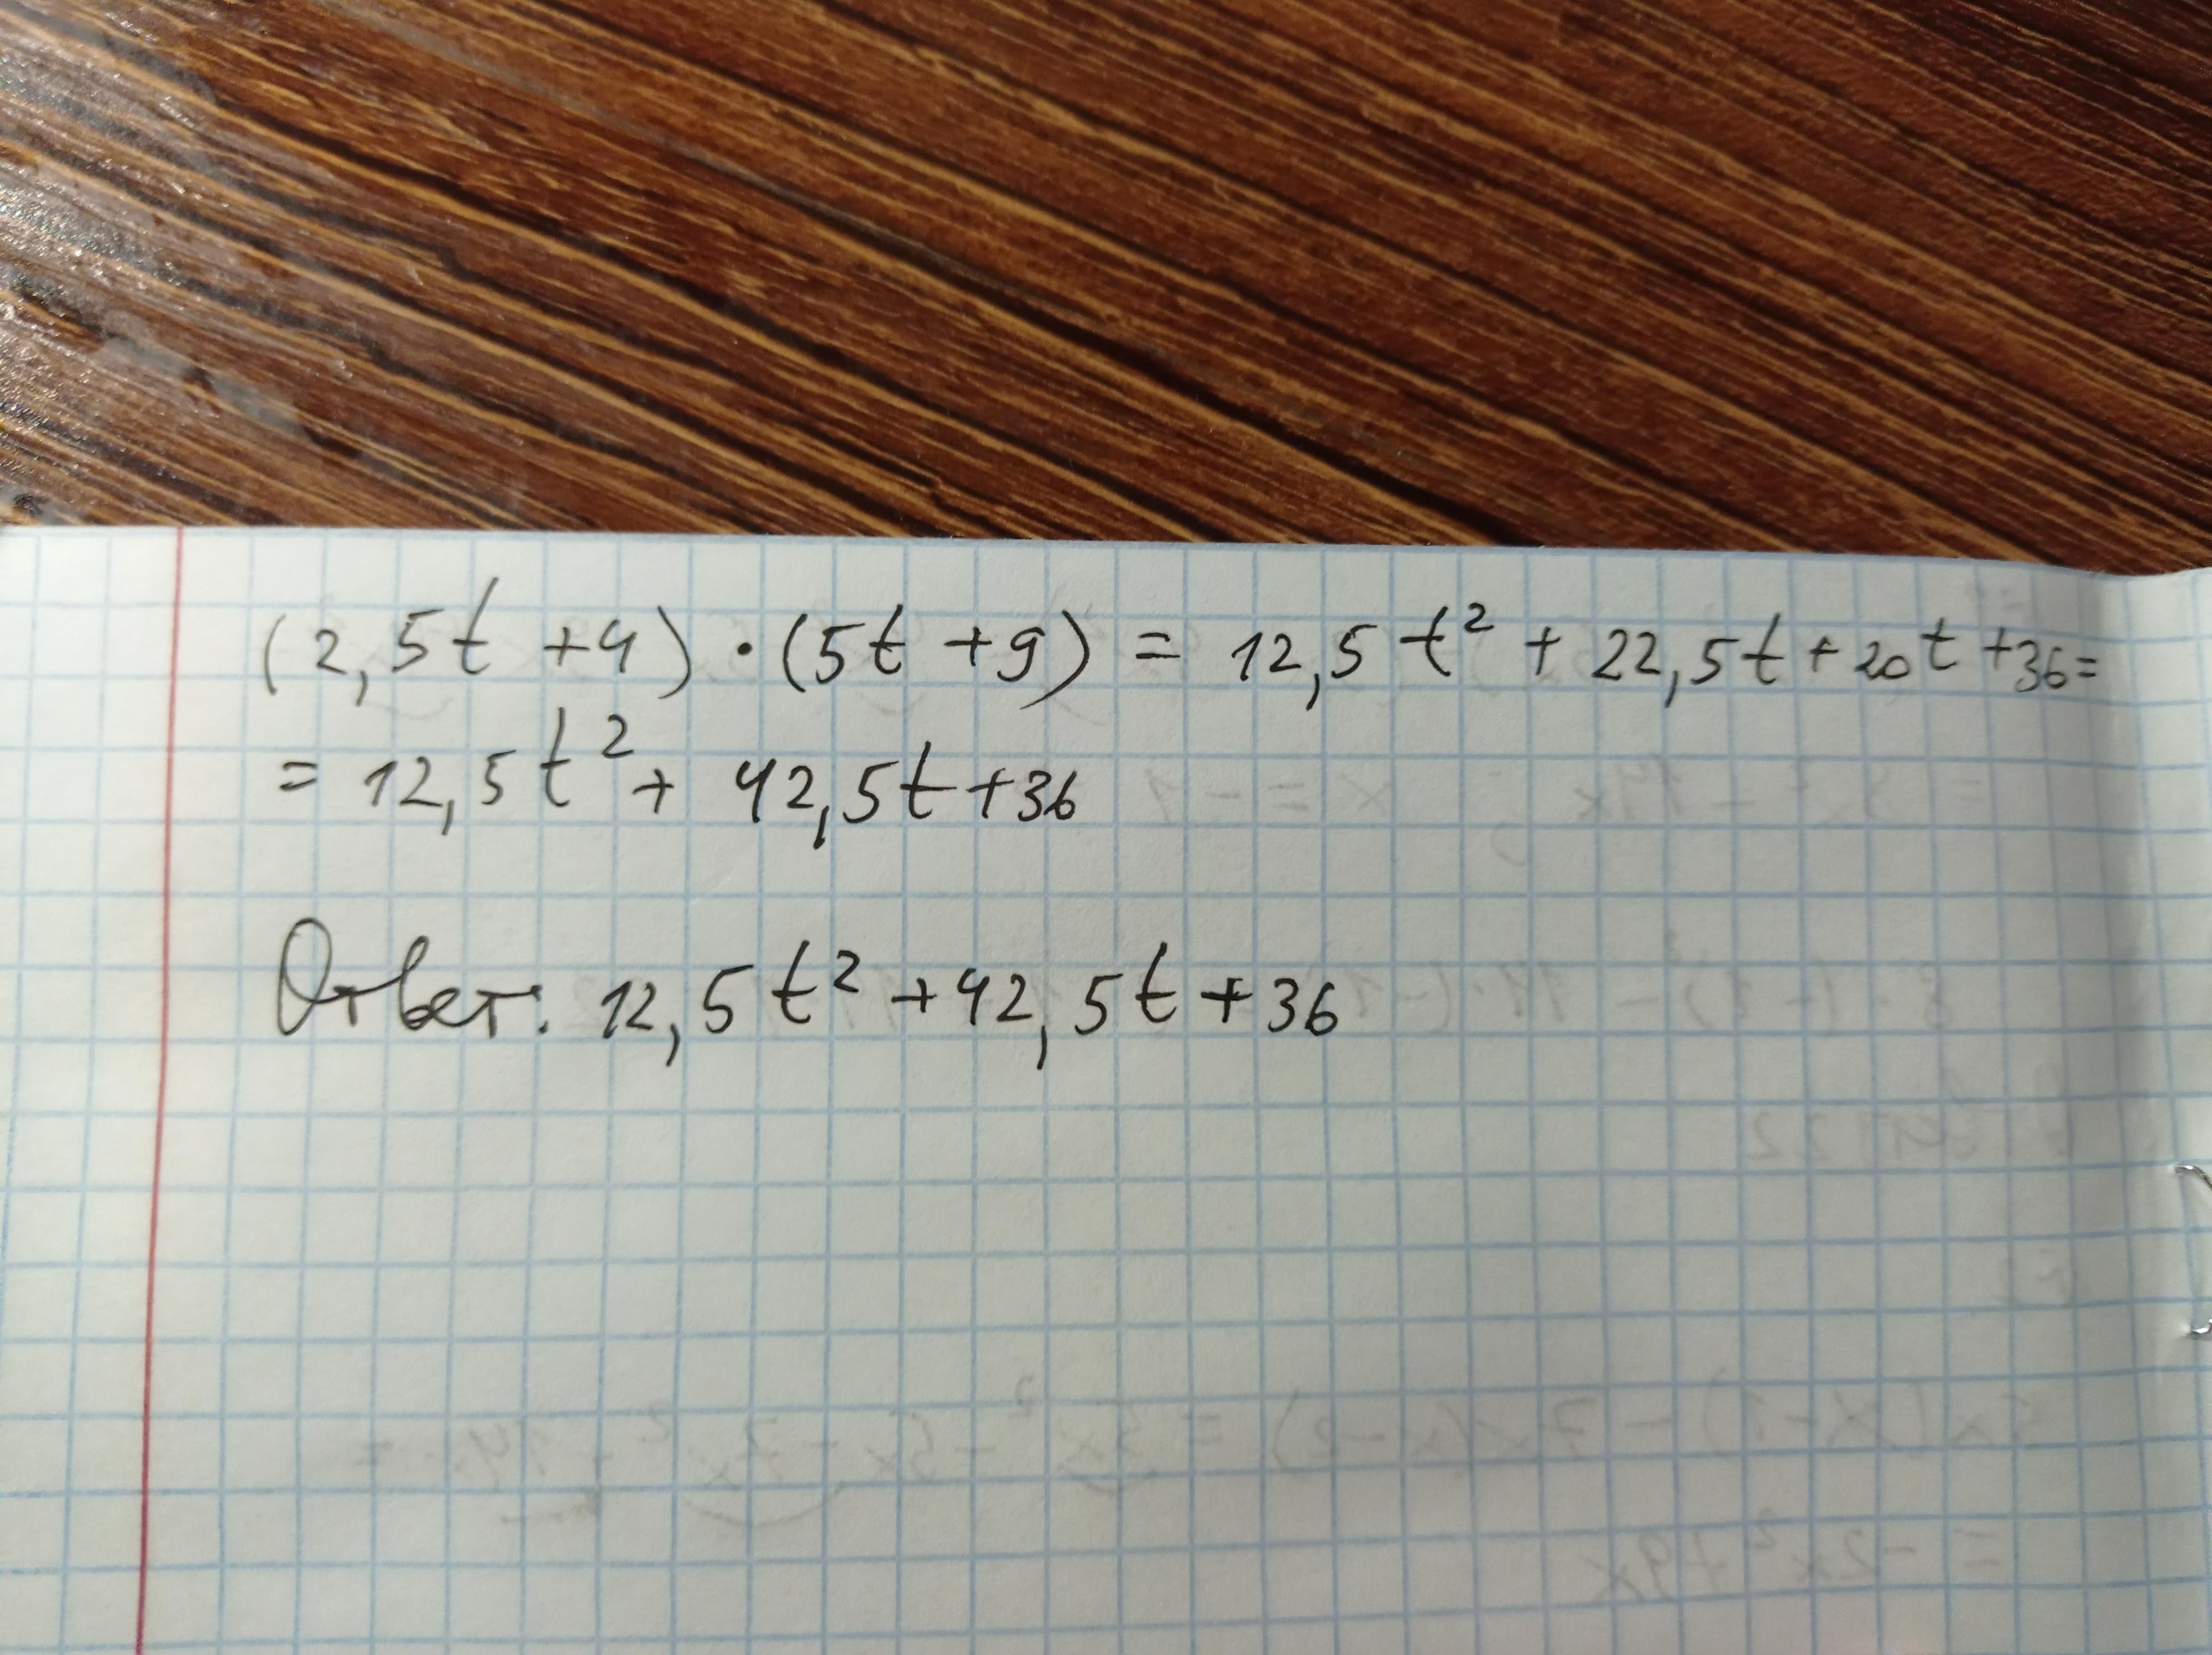 (2,5t +4) · (5t +9) = 12,5 t² + 22,5t + 20t +36=
= 12,5t² + 42,5t +36
Ответ: 12,5t² +42,5t +36